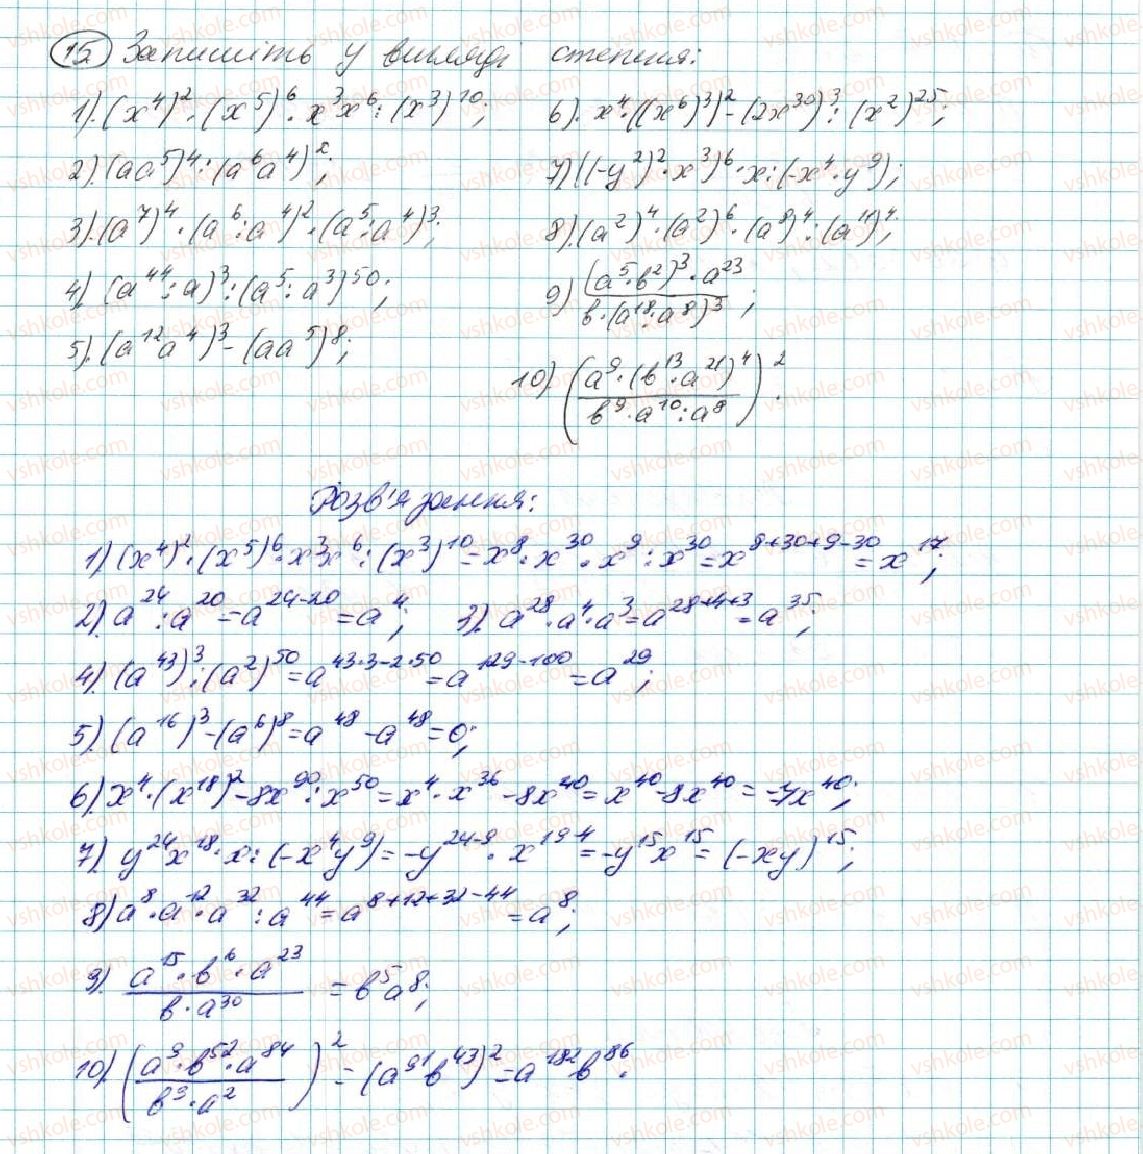 15 Запишіть у вигляді степеня:
1). (x⁴)² · (x⁵)⁶ · x³x⁶ : (x³)¹⁰;
2). (aa⁵)⁴ : (a⁶a⁴)²;
3). (a⁷)⁴ · (a⁶ : a⁴)² · (a⁵ : a⁴)³;
4) (a⁴⁴ : a)³ : (a⁵ : a³)⁵⁰;
5). (a¹²a⁴)³ - (aa⁵)⁸;
6). x⁴ · ((x⁶)³)² - (2x³⁰)³ : (x²)²⁵;
7) ((-y²)² · x³)⁶ · x : (-x⁴ · y⁹);
8). (a²)⁴ · (a²)⁶ · (a⁸)⁴ : (a¹¹)⁴;
9) (a⁵ · b²)³ · a²³ / b · (a¹⁸ : a⁸)³;
10). (a⁹ · (b¹³ · a²¹)⁴ / b⁹ · a¹⁰ : a⁸)².
Розв'язання:
1) (x⁴)² · (x⁵)⁶ · x³x⁶ : (x³)¹⁰ = x⁸ · x³⁰ · x⁹ : x³⁰ = x⁸⁺³⁰⁺⁹⁻³⁰ = x¹⁷;
2). a²⁴ : a²⁰ = a²⁴⁻²⁰ = a⁴; 3). a²⁸ · a⁴ · a³ = a²⁸⁺⁴⁺³ = a³⁵;
4) (a⁴³)³ : (a²)⁵⁰ = a⁴³·³⁻²·⁵⁰ = a¹²⁹⁻¹⁰⁰ = a²⁹;
5). (a¹⁶)³ - (a⁶)⁸ = a⁴⁸ - a⁴⁸ = 0;
6) x⁴ · (x¹⁸)² - 8x⁹⁰ : x⁵⁰ = x⁴ · x³⁶ - 8x⁴⁰ = x⁴⁰ - 8x⁴⁰ = -7x⁴⁰;
7) y²⁴x¹⁸ · x : (-x⁴y⁹) = -y²⁴⁻⁹ · x¹⁹⁻⁴ = -y¹⁵x¹⁵ = (-xy)¹⁵;
8) a⁸ · a¹² · a³² : a⁴⁴ = a⁸⁺¹²⁺³²⁻⁴⁴ = a⁸;
9) a¹⁵ · b⁶ · a²³ / b · a³⁰ = b⁵a⁸;
10) (a⁹ · b⁵² · a⁸⁴ / b⁹ · a²)² = (a⁹¹b⁴³)² = a¹⁸²b⁸⁶.